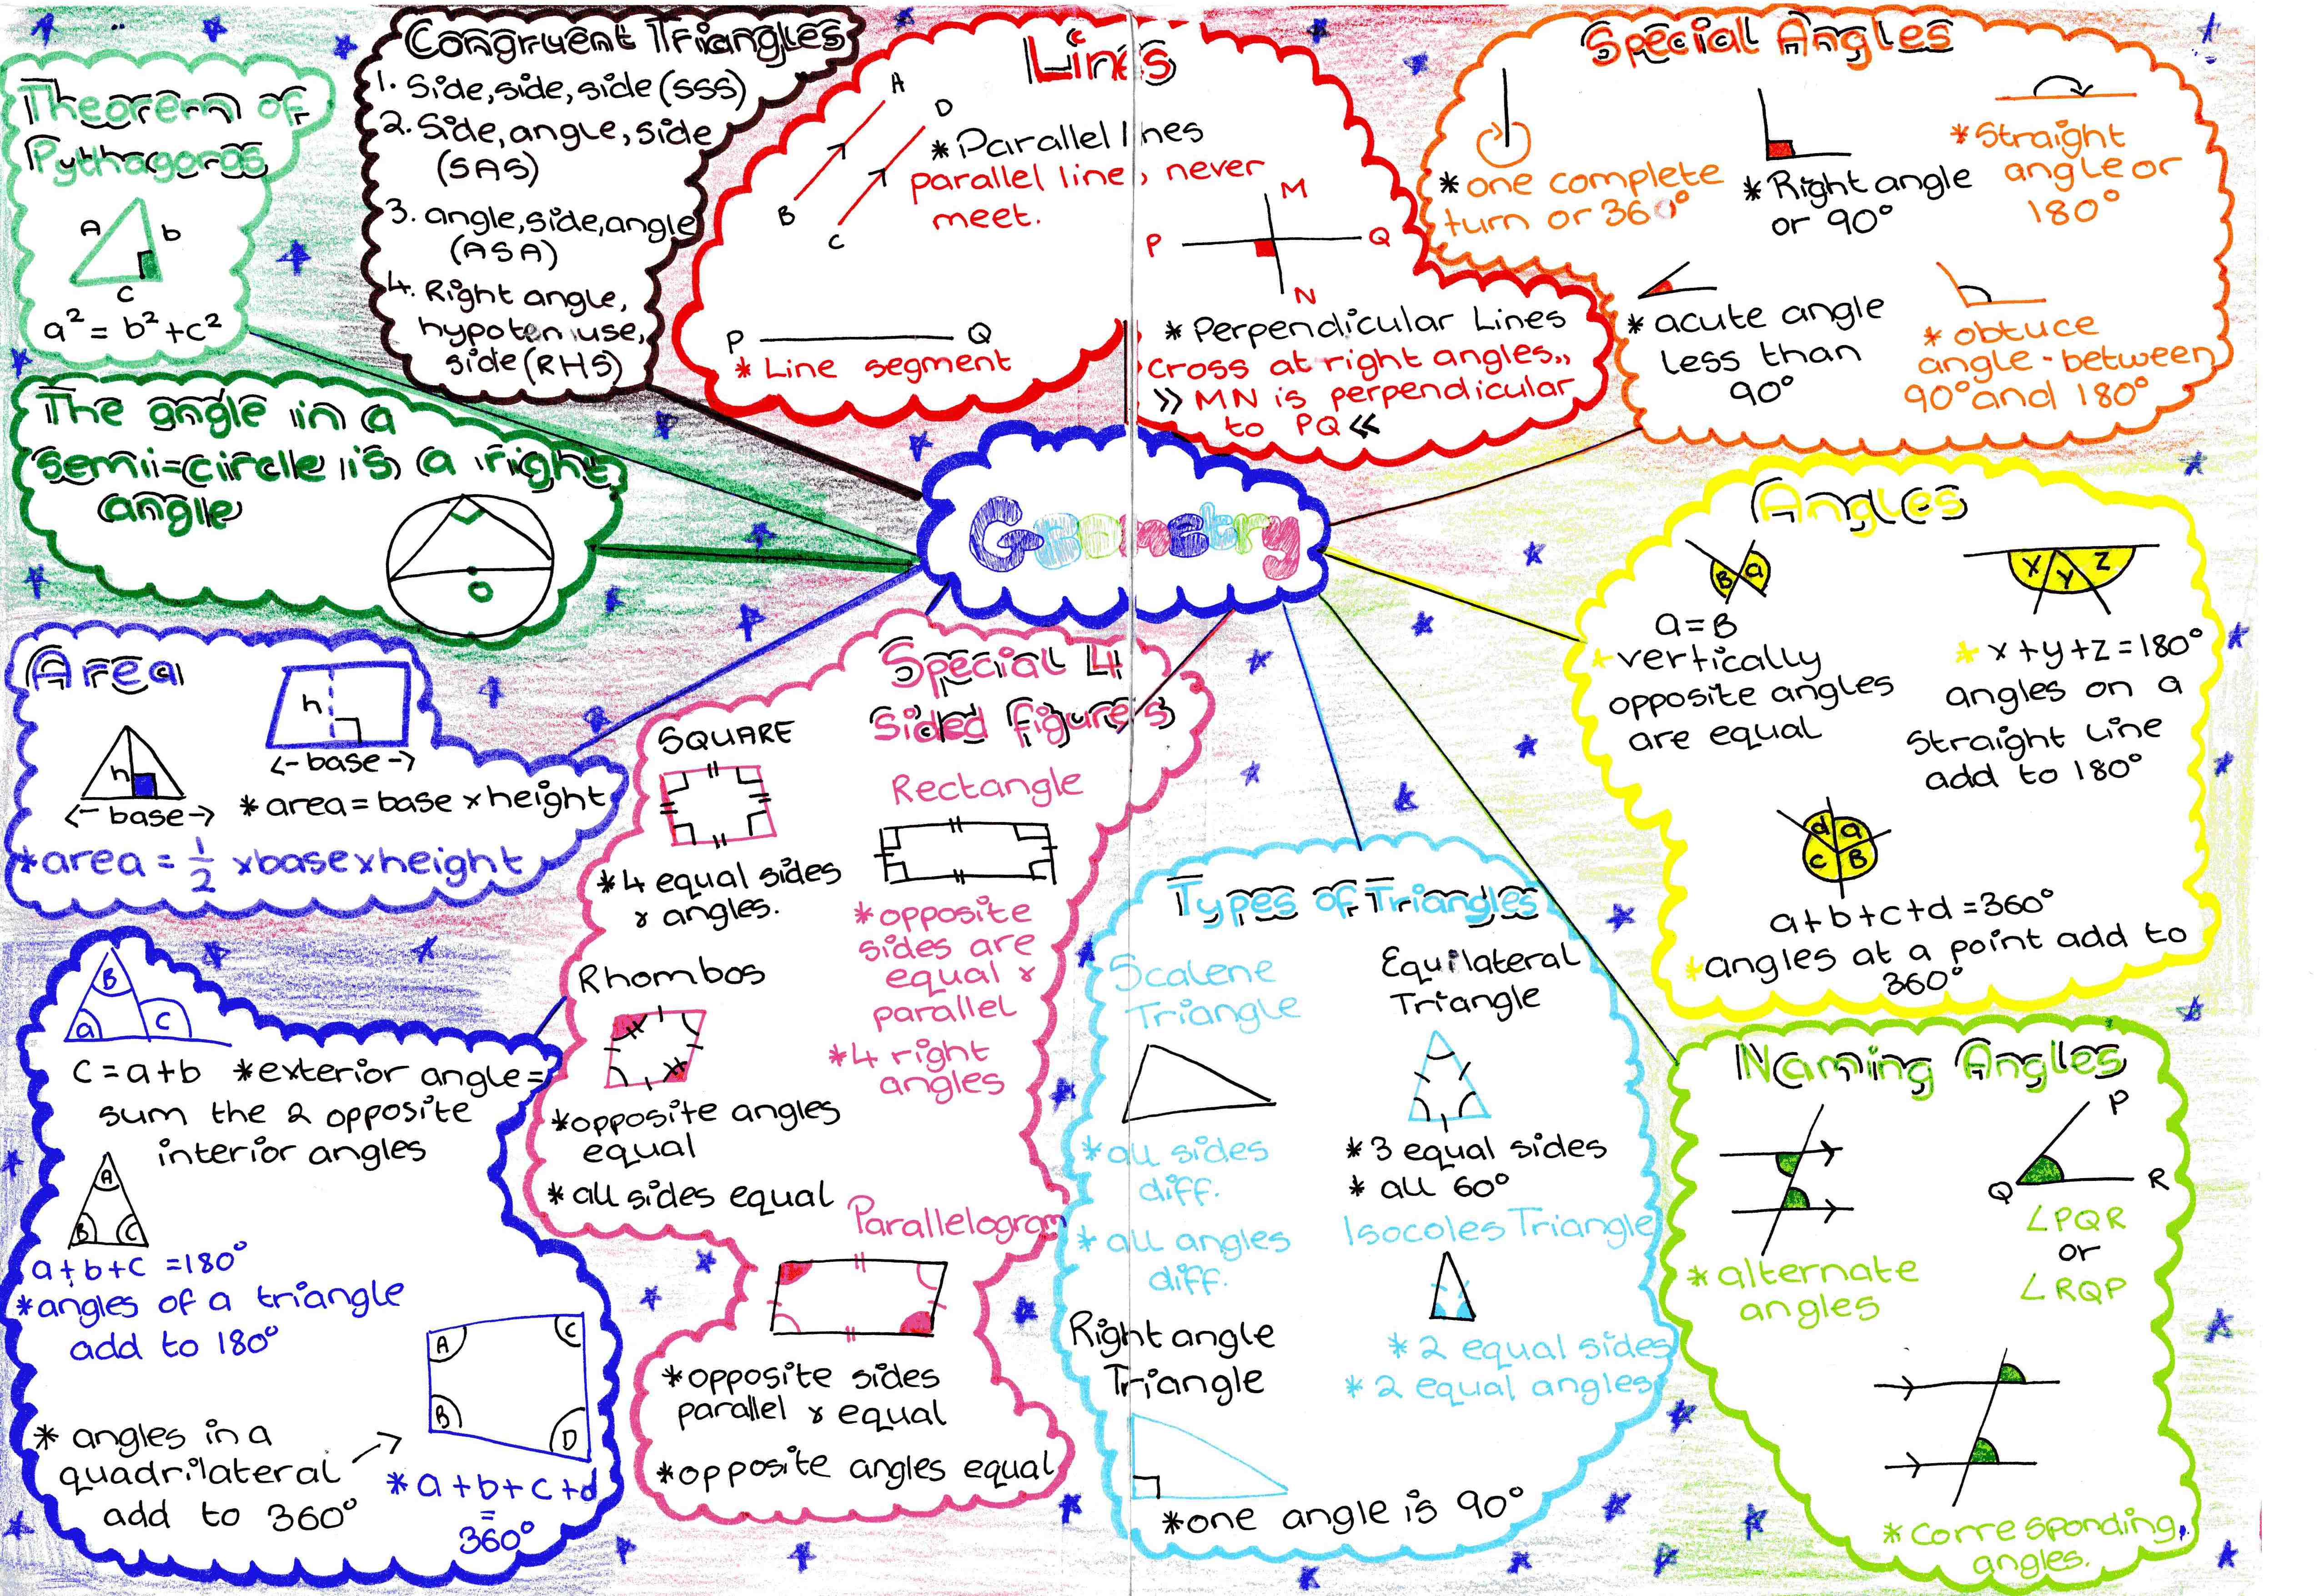 Theorem of
Pythagoras
A
b
c
a² = b² + c²
Congruent Triangles
1. Side, side, side (SSS)
2. Side, angle, side
(SAS)
3. angle, side, angle
(ASA)
4. Right angle,
hypotenuse,
side (RHS)
Lines
A
D
B
C
* Parallel lines
parallel lines, never
meet.
P
Q
* Line segment
M
P
Q
N
* Perpendicular Lines
cross at right angles,,
» MN is perpendicular
to PQ «
Special Angles
* one complete
turn or 360°
* Right angle
or 90°
* Straight
angle or
180°
* acute angle
less than
90°
* obtuce
angle - between
90° and 180°
The angle in a
semi-circle is a right
angle
O
Geometry
Angles
B a
a = B
* vertically
opposite angles
are equal
x y z
* x + y + z = 180°
angles on a
straight line
add to 180°
d a
c B
a + b + c + d = 360°
* angles at a point add to
360°
Area
h
<- base ->
* area = base x height
h
<- base ->
* area = 1/2 x base x height
Special 4
Sided figures
SQUARE
* 4 equal sides
& angles.
Rectangle
* opposite
sides are
equal &
parallel
* 4 right
angles
Rhombos
* opposite angles
equal
* all sides equal
Parallelogram
* opposite sides
parallel & equal
* opposite angles equal
B
a
C
c = a + b * exterior angle =
sum the 2 opposite
interior angles
A
B C
a + b + c = 180°
* angles of a triangle
add to 180°
A C
B D
* angles in a
quadrilateral
add to 360°
* a + b + c + d
=
360°
Types of Triangles
Scalene
Triangle
* all sides
diff.
* all angles
diff.
Equilateral
Triangle
* 3 equal sides
* all 60°
Isocoles Triangle
* 2 equal sides
* 2 equal angles
Right angle
Triangle
* one angle is 90°
Naming Angles
* alternate
angles
P
Q
R
∠PQR
or
∠RQP
* corresponding
angles.